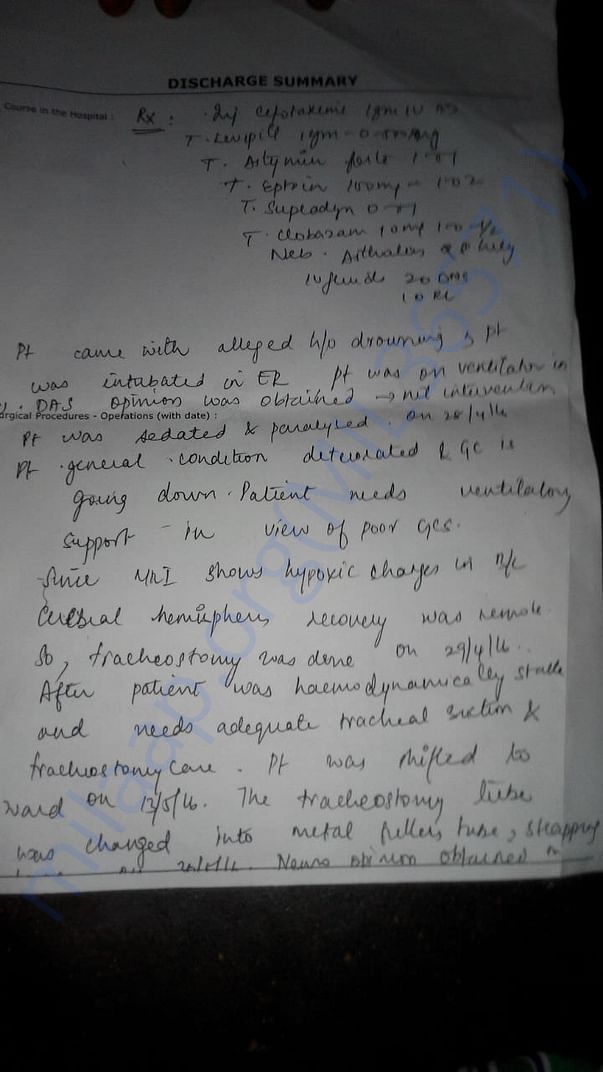 DISCHARGE SUMMARY
Course in the Hospital : Rx : Inj Cefotaxime 1gm IV
T. Levipil 1gm - 0 -
T. Astymin forte 1-0-1
T. Eptoin 100mg - 1-0-2
T. Supradyn 0-0-1
T. Clobazam 10mg 1-0-½
Neb. Asthalin
IV fluids 2 DNS
1 RL
Pt came with alleged h/o drowning, pt
was intubated in ER Pt was on ventilator in
opinion was obtained → nil intervention
urgical Procedures - Operations (with date) :
Pt was sedated & paralysed. on 28/4/16
Pt general condition deteriorated & GC is
going down. Patient needs ventilatory
support in view of poor GCS.
Since MRI shows hypoxic changes in B/L
Cerebral hemisphere, recovery was remote.
So, tracheostomy was done on 29/4/16.
After patient was haemodynamically stable
and needs adequate tracheal suction &
tracheostomy care. Pt was shifted to
ward on 12/5/16. The tracheostomy tube
was changed into metal fullers tube,
Neuro opinion obtained
milaap.org(MIL36571)